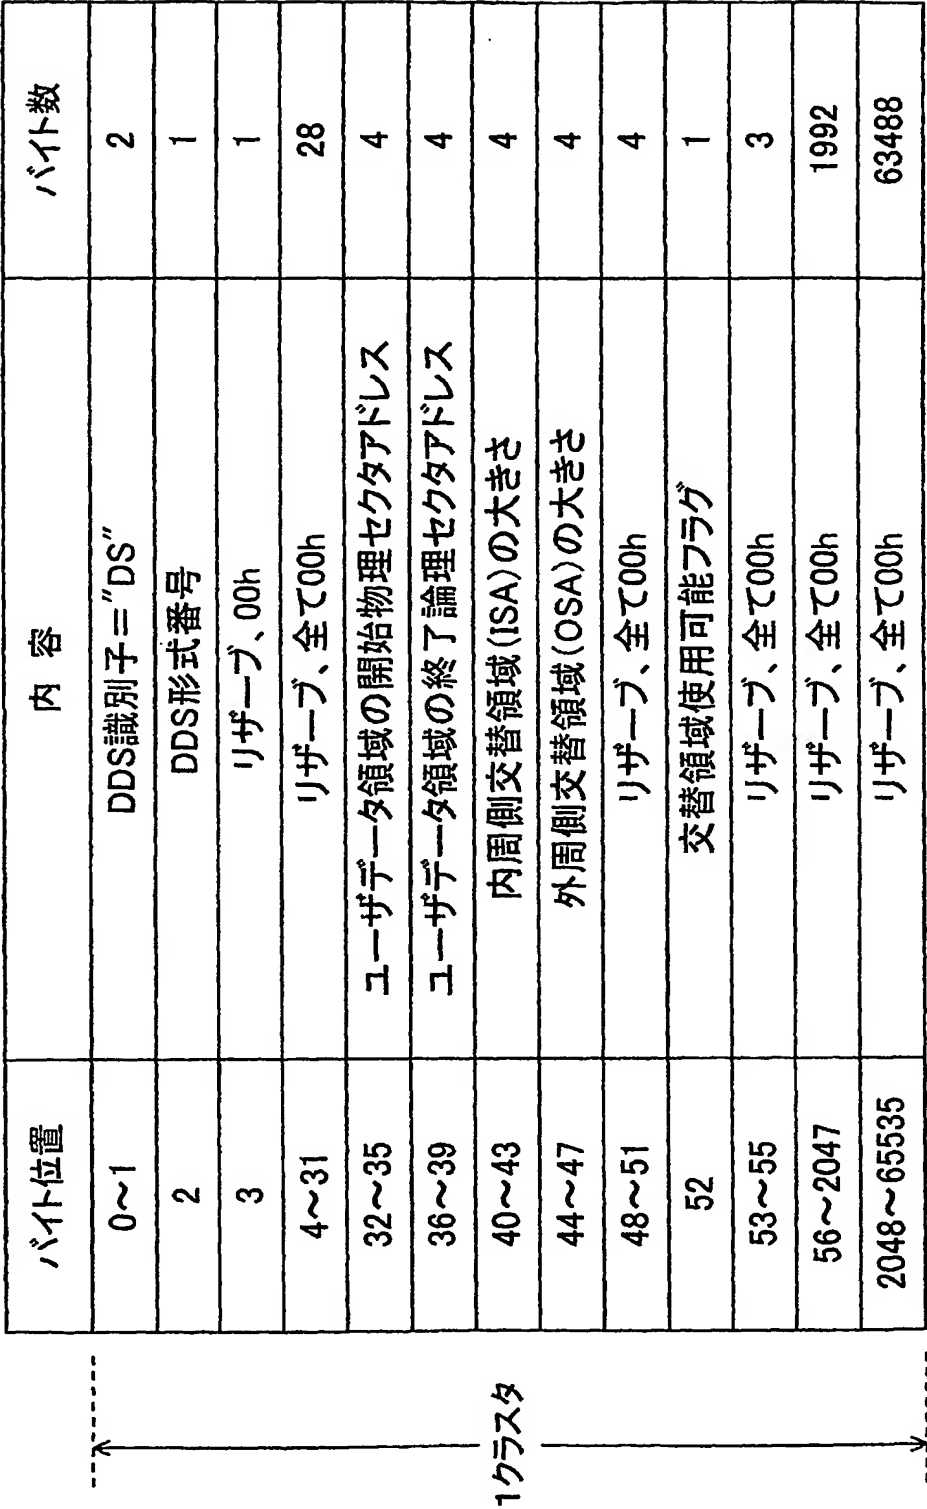 バイト位置 内 容 バイト数
0～1 DDS識別子="DS" 2
2 DDS形式番号 1
3 リザーブ、00h 1
4～31 リザーブ、全て00h 28
32～35 ユーザデータ領域の開始物理セクタアドレス 4
36～39 ユーザデータ領域の終了論理セクタアドレス 4
40～43 内周側交替領域(ISA)の大きさ 4
44～47 外周側交替領域(OSA)の大きさ 4
48～51 リザーブ、全て00h 4
52 交替領域使用可能フラグ 1
53～55 リザーブ、全て00h 3
56～2047 リザーブ、全て00h 1992
2048～65535 リザーブ、全て00h 63488
1クラスタ